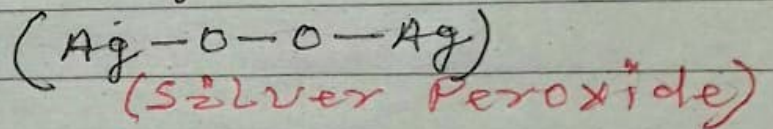 (Ag-O-O-Ag)
(Silver Peroxide)